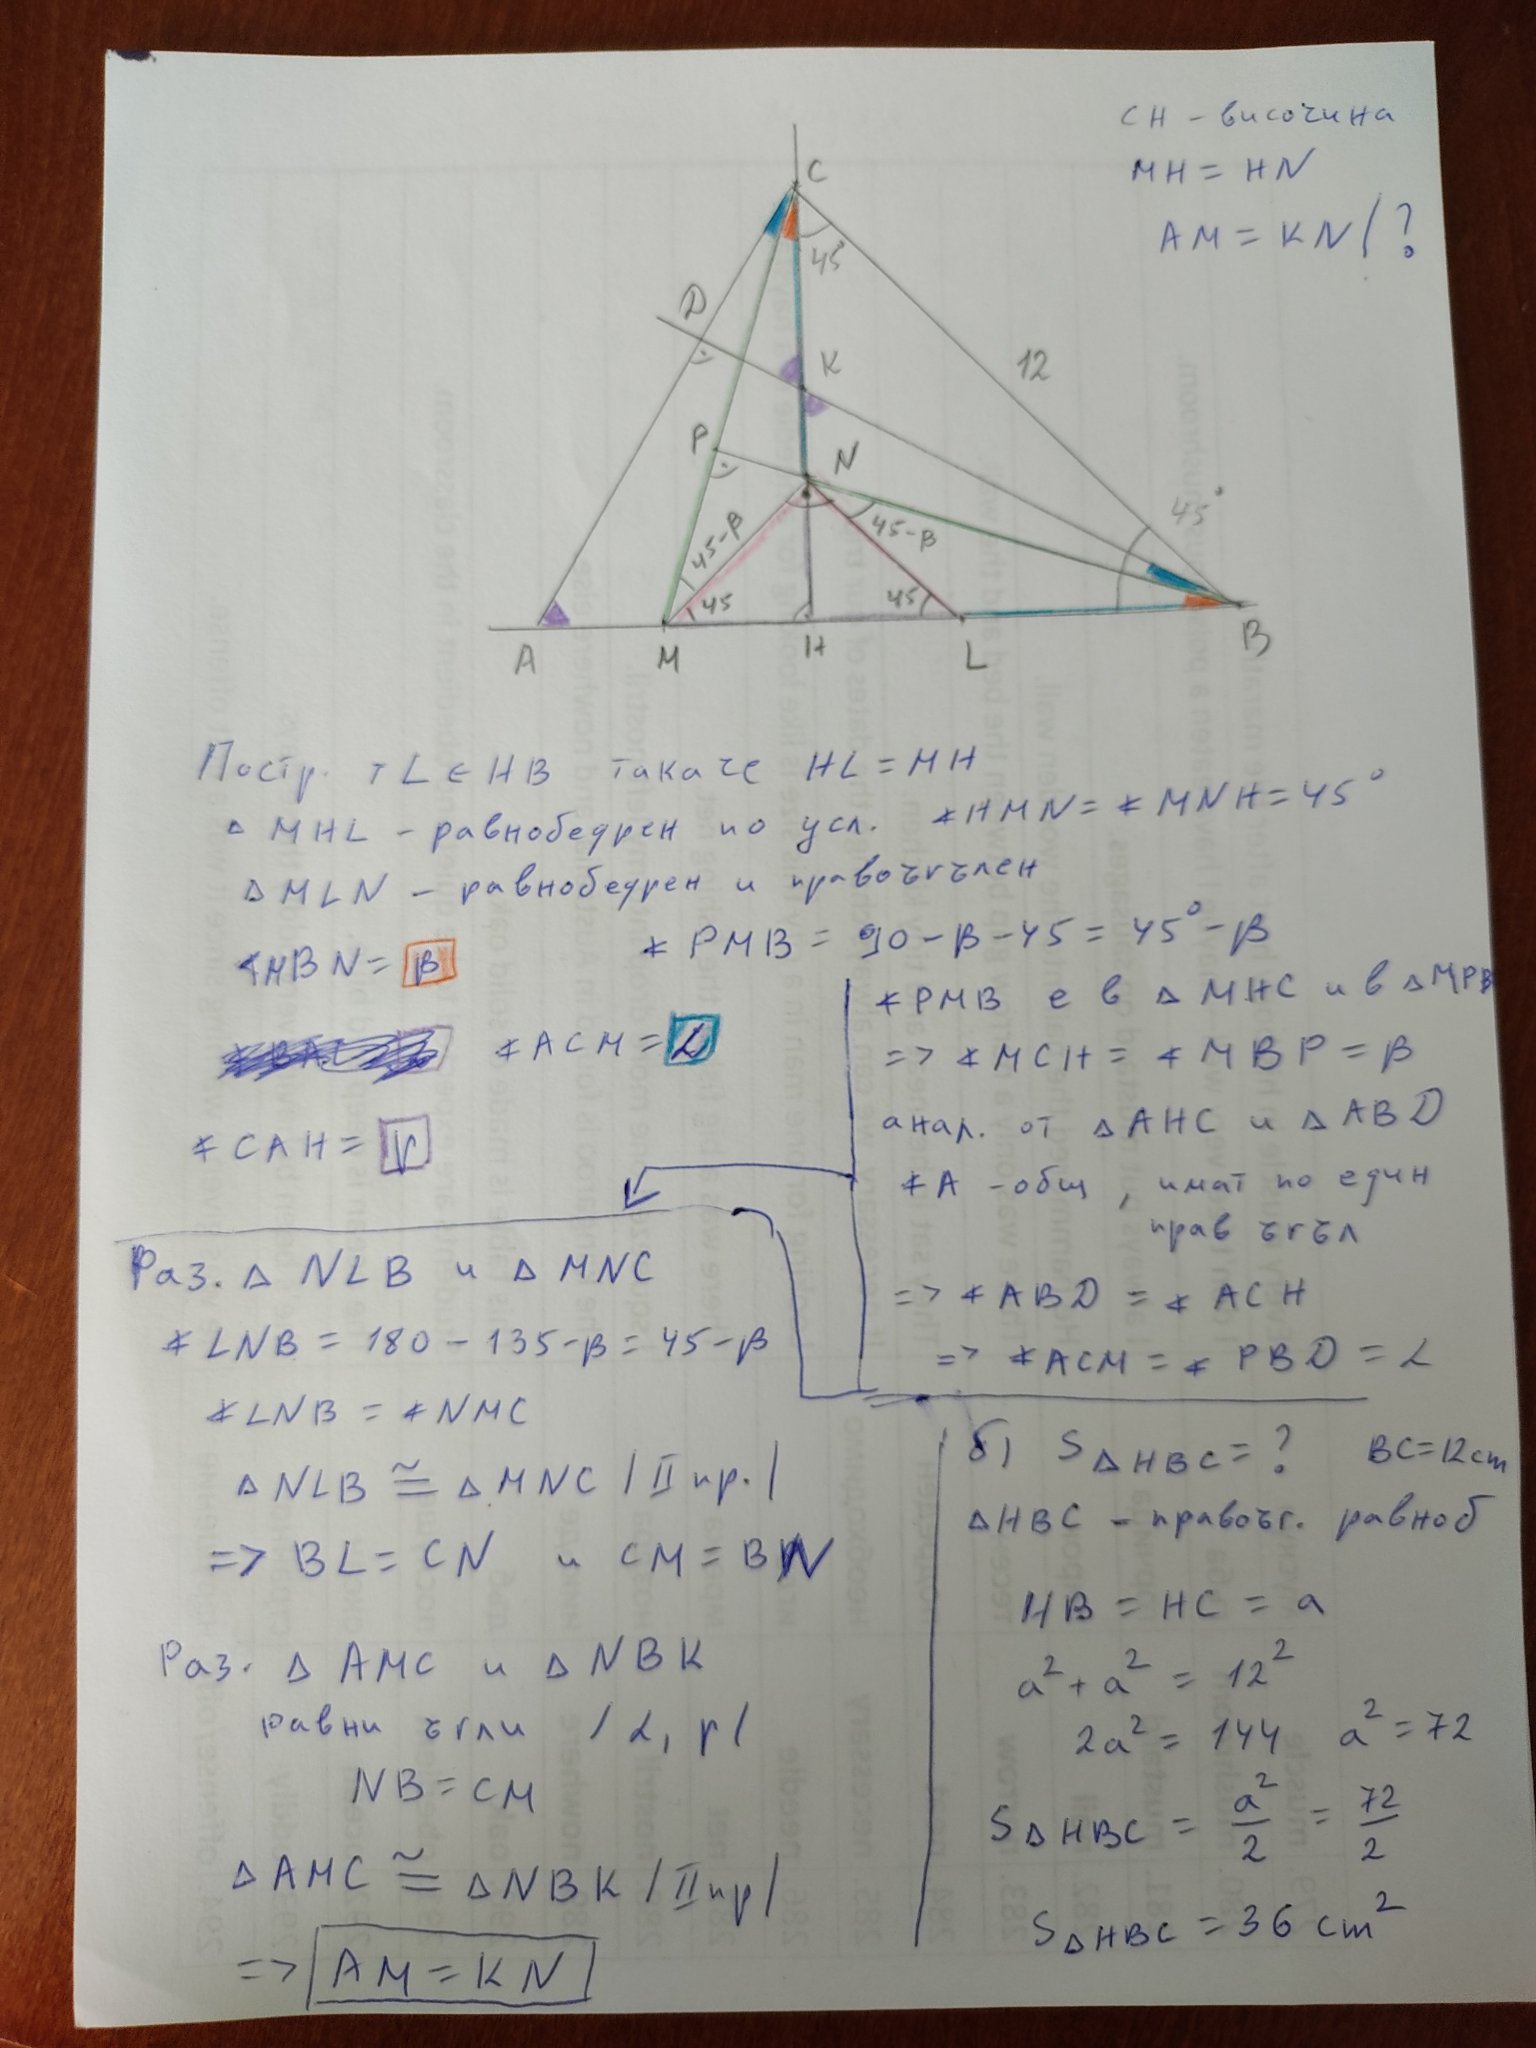 CH - височина
MH = HN
AM = KN / ?
C
45°
D
K
12
P
N
45-β
45-β
45°
45
45
A
M
H
L
B
Постр. т L ∈ HB така че HL = MH
△ MHL - равнобедрен по усл. ∢HMN = ∢MNH = 45°
△ MLN - равнобедрен и правоъгълен
∢HBN = β
∢ PMB = 90 - β - 45 = 45° - β
∢ACM = α
∢CAH = γ
∢PMB е в △ MHC и в △MPB
=> ∢MCH = ∢MBP = β
анал. от △AHC и △ABD
∢A - общ, имат по един
прав ъгъл
=> ∢ABD = ∢ACH
=> ∢ACM = ∢PBD = α
Раз. △ NLB и △ MNC
∢LNB = 180 - 135 - β = 45 - β
∢LNB = ∢NMC
△NLB ≅ △MNC / II пр. /
=> BL = CN и CM = BN
Раз. △ AMC и △ NBK
равни ъгли / α, γ /
NB = CM
△AMC ≅ △NBK / II пр /
=> AM = KN
б) S△HBC = ? BC = 12cm
△HBC - правоъг. равноб
HB = HC = a
a² + a² = 12²
2a² = 144 a² = 72
S△HBC = a²/2 = 72/2
S△HBC = 36 cm²